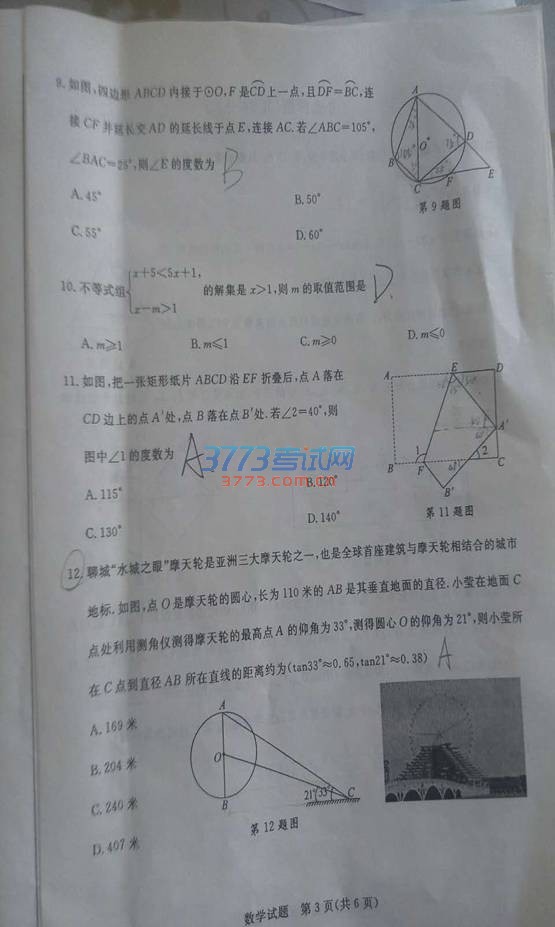 9. 如图,四边形 ABCD 内接于⊙O,F 是CD上一点,且DF=BC,连
接 CF 并延长交 AD 的延长线于点 E,连接 AC.若∠ABC=105°,
∠BAC=25°,则∠E 的度数为 B
A. 45°
B. 50°
C. 55°
D. 60°
A
O
D
B
C
F
E
第 9 题图
10. 不等式组
x+5<5x+1,
x-m>1
的解集是 x>1,则 m 的取值范围是 D
A. m≥1
B. m≤1
C. m≥0
D. m≤0
11. 如图,把一张矩形纸片 ABCD 沿 EF 折叠后,点 A 落在
CD 边上的点 A'处,点 B 落在点 B'处.若∠2=40°,则
图中∠1 的度数为 A
A. 115°
B. 120°
C. 130°
D. 140°
A
E
D
A'
B
1
F
2
C
B'
第 11 题图
3773考试网
3773.com.cn
12. 聊城“水城之眼”摩天轮是亚洲三大摩天轮之一,也是全球首座建筑与摩天轮相结合的城市
地标.如图,点 O 是摩天轮的圆心,长为 110 米的 AB 是其垂直地面的直径.小莹在地面 C
点处利用测角仪测得摩天轮的最高点 A 的仰角为 33°,测得圆心 O 的仰角为 21°,则小莹所
在 C 点到直径 AB 所在直线的距离约为(tan33°≈0.65,tan21°≈0.38) A
A. 169 米
B. 204 米
C. 240 米
D. 407 米
A
O
B
21°
33°
C
第 12 题图
数学试题 第 3 页(共 6 页)